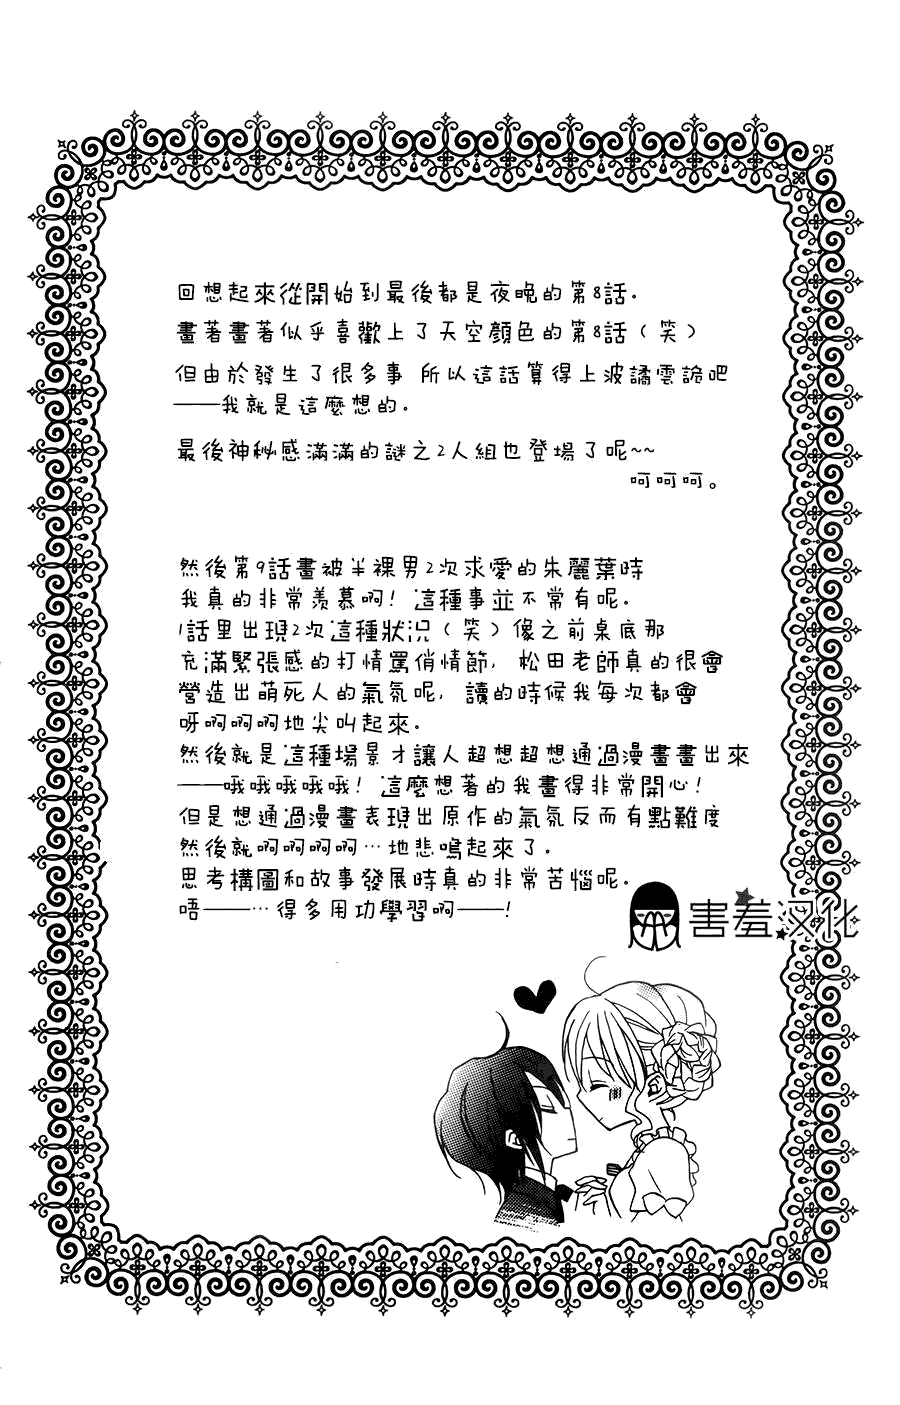 回想起來從開始到最後都是夜晚的第8話.
畫著畫著似乎喜歡上了天空顏色的第8話（笑）
但由於發生了很多事 所以這話算得上波譎雲詭吧
——我就是這麼想的.
最後神秘感滿滿的謎之2人組也登場了呢~~
呵呵呵。
然後第9話畫被半裸男2次求愛的朱麗葉時
我真的非常羨慕啊! 這種事並不常有呢.
1話里出現2次這種狀況（笑）像之前桌底那
充滿緊張感的打情罵俏情節, 松田老師真的很會
營造出萌死人的氣氛呢, 讀的時候我每次都會
呀啊啊啊地尖叫起來.
然後就是這種場景才讓人超想超想通過漫畫畫出來
——哦哦哦哦哦! 這麼想著的我畫得非常開心!
但是想通過漫畫表現出原作的氣氛反而有點難度
然後就啊啊啊啊…地悲鳴起來了.
思考構圖和故事發展時真的非常苦惱呢.
唔——…得多用功學習啊——!
害羞汉化